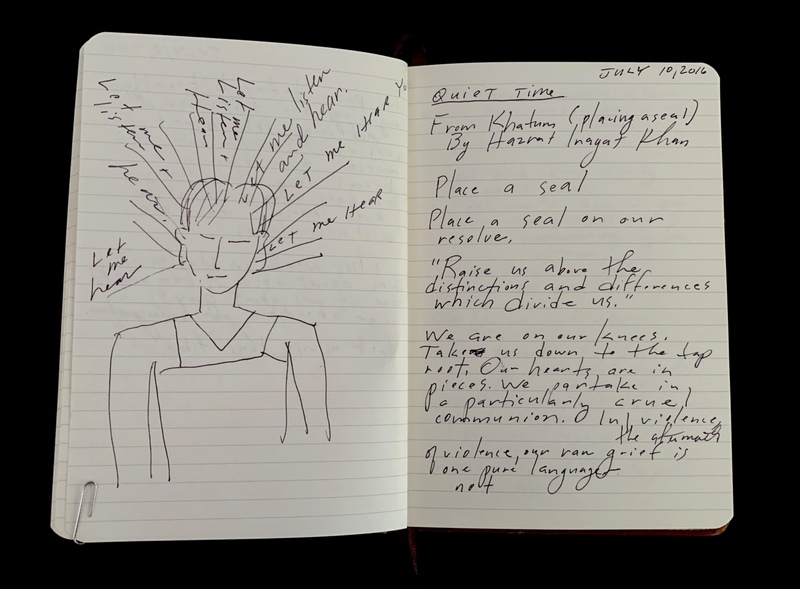 Let me
listen +
hear.
Let me
Listen +
Hear
Let me listen
and hear.
Let me Hear
Let me Hear
Let
me
hear
JULY 10, 2016
QUIET TIME
From Khatum (placing a seal)
By Hazrat Inayat Khan
Place a seal
Place a seal on our
resolve.
"Raise us above the
distinctions and differences
which divide us."
We are on our knees.
Take us down to the tap
root. Our hearts are in
pieces. We partake in
a particularly cruel
communion. In violence,
the aftermath
of violence, our raw grief is
one pure language
not